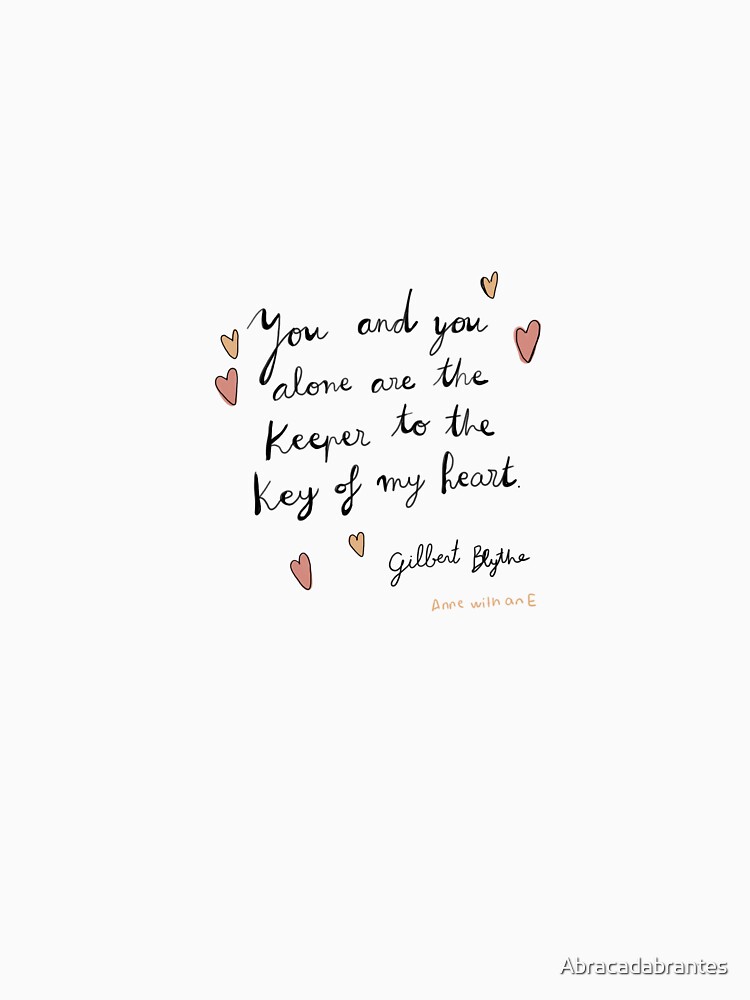 You and you
alone are the
Keeper to the
Key of my heart.
Gilbert Blythe
Anne with an E
Abracadabrantes